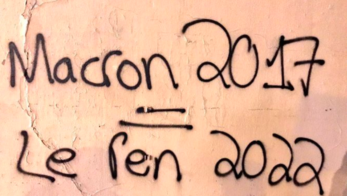 Macron 2017
=
Le Pen 2022